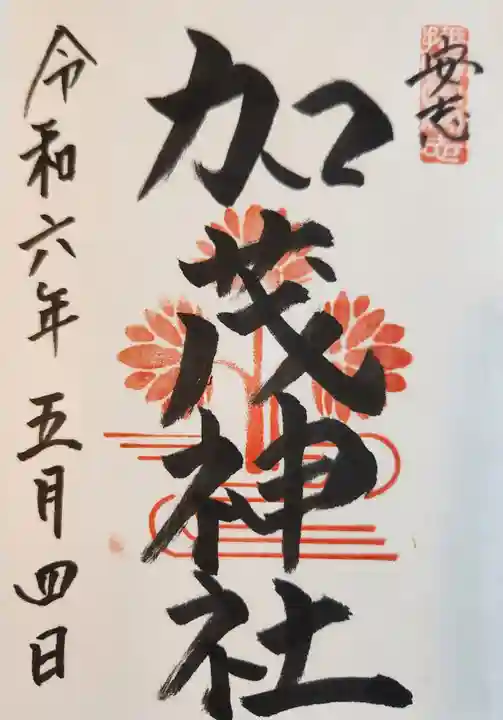 安志
加茂神社
令和六年 五月四日